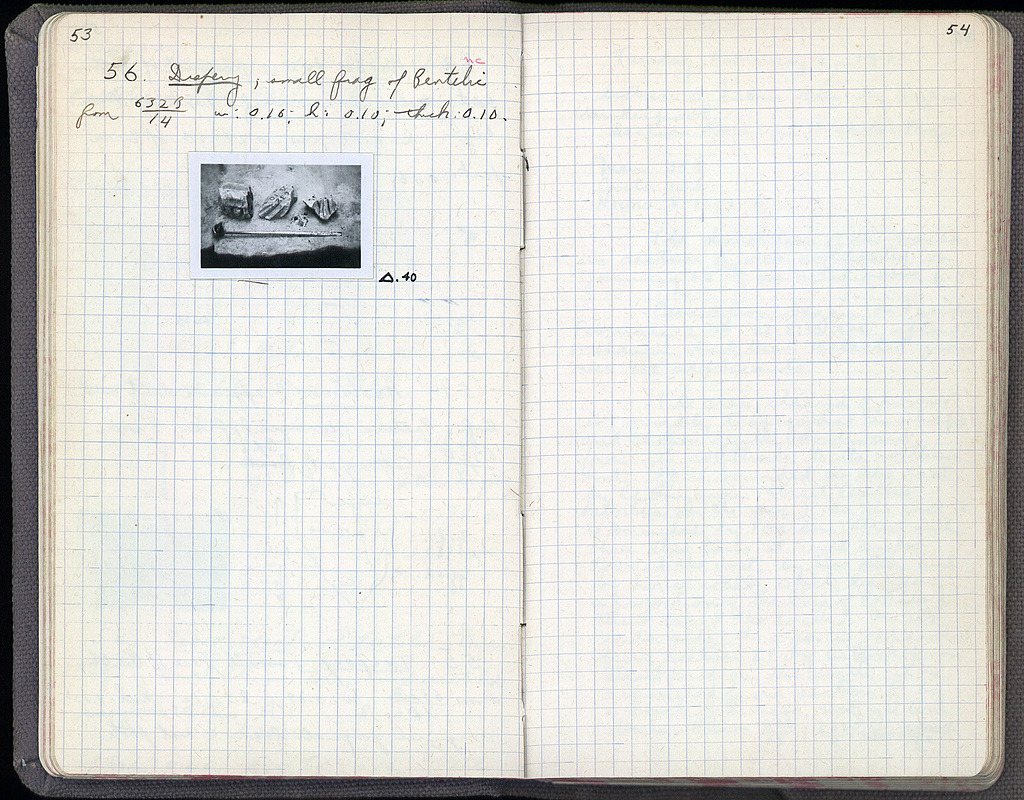 53
nc
56. Drapery; small frag of Pentelic
from 6328/14 w: 0.16; h: 0.10; thick: 0.10.
Δ.40
54